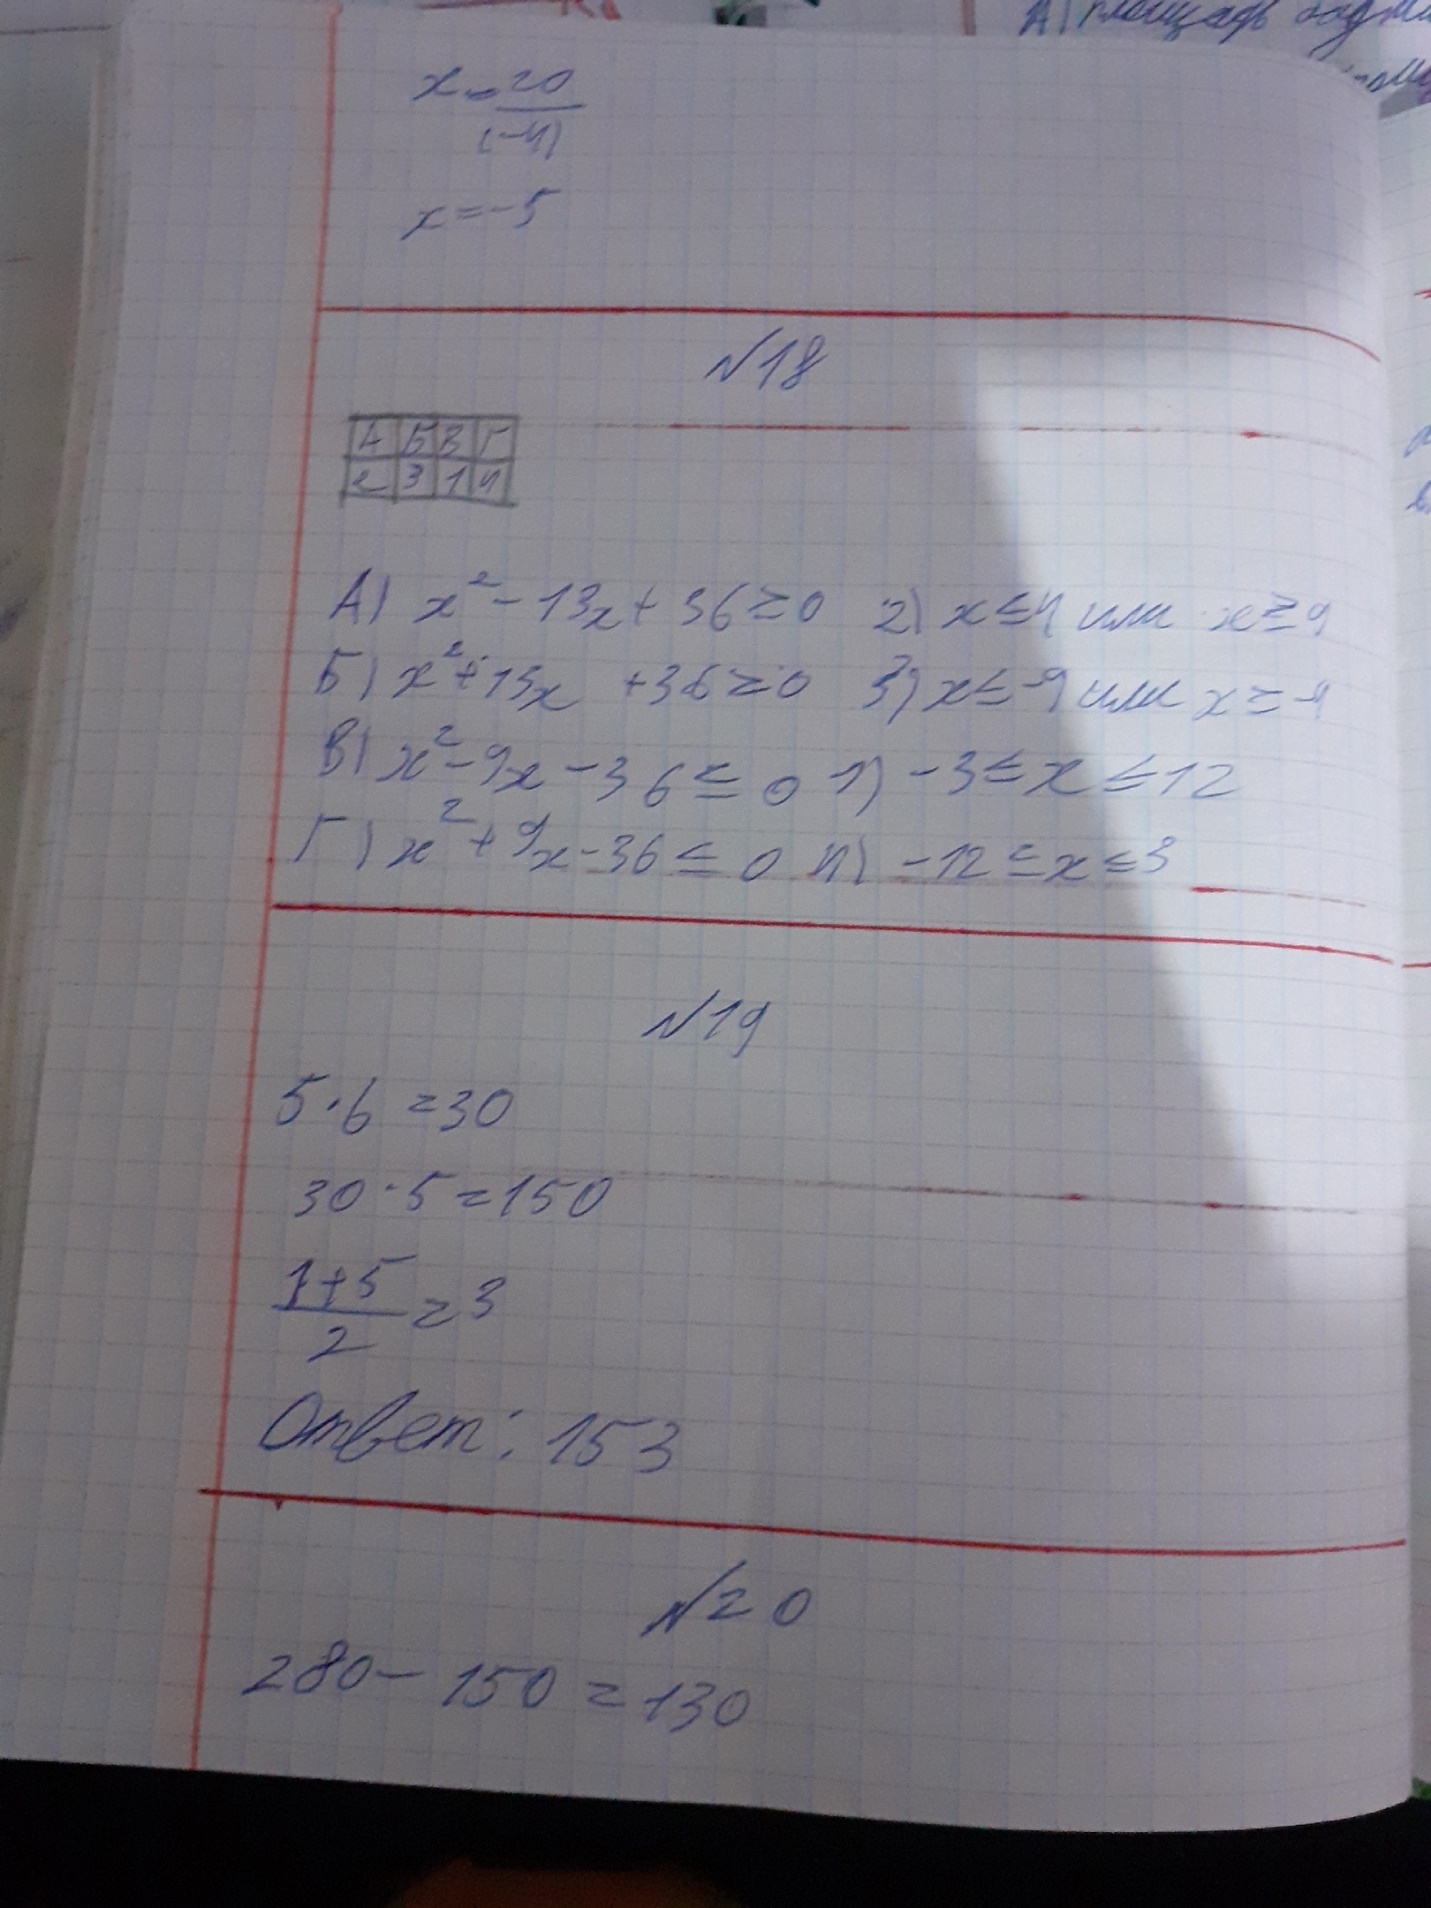 А) площадь
x = 20
(-4)
x = -5
№18
А Б В Г
2 3 1 4
А) x² - 13x + 36 ≥ 0 2) x ≤ 4 или x ≥ 9
Б) x² + 13x + 36 ≥ 0 3) x ≤ -9 или x ≥ -4
В) x² - 9x - 36 ≤ 0 1) -3 ≤ x ≤ 12
Г) x² + 9x - 36 ≤ 0 4) -12 ≤ x ≤ 3
№19
5·6 = 30
30·5 = 150
1+5
2
= 3
Ответ: 153
№20
280 - 150 = 130